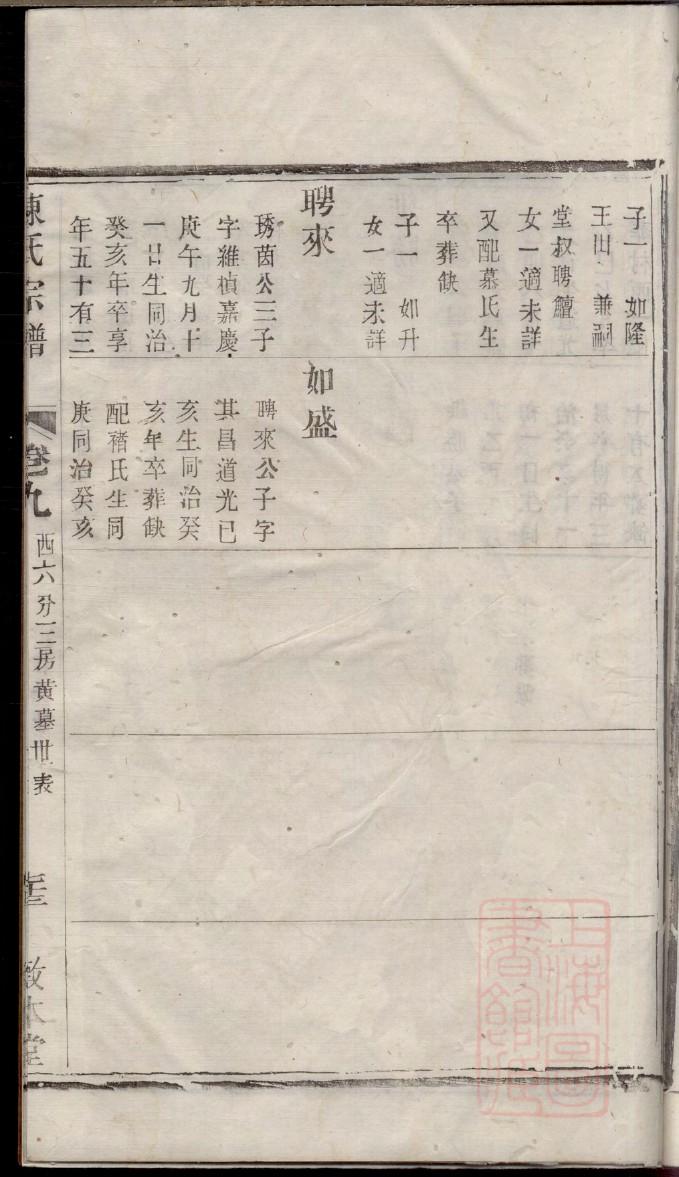 子一　如隆
王田　兼嗣
堂叔聘鱣
女一適未詳
又配慕氏生
卒葬缺
子一　如升
女一適未詳
聘來
琇茵公三子
字維楨嘉慶
庚午九月十
一日生同治
癸亥年卒享
年五十有三
如盛
聘來公子字
其昌道光已
亥生同治癸
亥年卒葬缺
配褚氏生同
庚同治癸亥
陳氏宗譜
卷九
西六分三房黃墓世表
敦本堂
上海圖書館藏